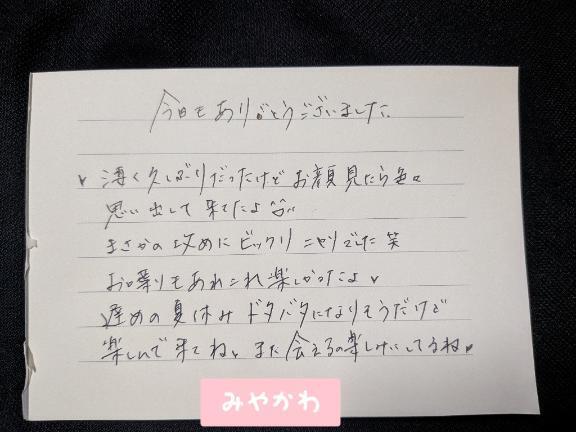 今日もありがとうございました
♥凄く久しぶりだったけどお顔見たら色々
思い出して来てたよ
まさかの攻めにビックリニヤリでした笑
お喋りもあれこれ楽しかったよ♥
遅めの夏休みドタバタになりそうだけど
楽しんで来てね♥また会えるの楽しみにしてるね♥
みやかわ